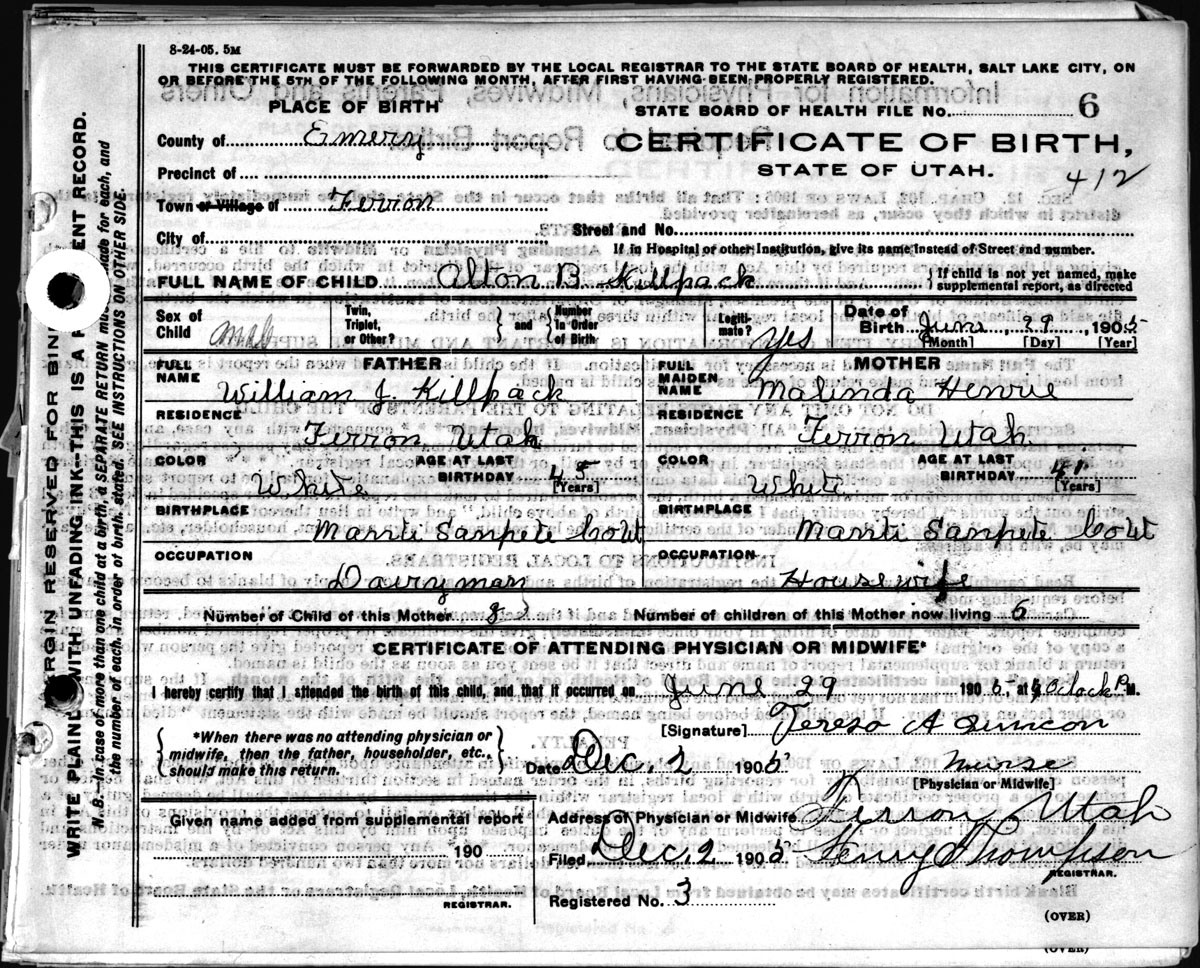 8-24-05. 5M
THIS CERTIFICATE MUST BE FORWARDED BY THE LOCAL REGISTRAR TO THE STATE BOARD OF HEALTH, SALT LAKE CITY, ON
OR BEFORE THE 5TH OF THE FOLLOWING MONTH, AFTER FIRST HAVING BEEN PROPERLY REGISTERED.
PLACE OF BIRTH
STATE BOARD OF HEALTH FILE No. 6
County of Emery
CERTIFICATE OF BIRTH,
STATE OF UTAH.
412
Precinct of
Town or Village of Ferron
City of
Street and No.
If in Hospital or other Institution, give its name instead of Street and number.
FULL NAME OF CHILD Alton B. Killpack
If child is not yet named, make
supplemental report, as directed
Sex of Child male
Twin, Triplet, or Other?
and
Number in Order of Birth
Legitimate? yes
Date of Birth June 29 1905
[Month] [Day] [Year]
FATHER
FULL NAME William J. Killpack
RESIDENCE
Ferron Utah
COLOR White
AGE AT LAST BIRTHDAY 45 [Years]
BIRTHPLACE
Manti Sanpete Co Ut
OCCUPATION
Dairyman
MOTHER
FULL MAIDEN NAME Malinda Henrie
RESIDENCE
Ferron Utah
COLOR White
AGE AT LAST BIRTHDAY 41 [Years]
BIRTHPLACE
Manti Sanpete Co Ut
OCCUPATION
Housewife
Number of Child of this Mother 8
Number of children of this Mother now living 6
CERTIFICATE OF ATTENDING PHYSICIAN OR MIDWIFE*
I hereby certify that I attended the birth of this child, and that it occurred on June 29 190 , at 9 Oclock P M.
*When there was no attending physician or
midwife, then the father, householder, etc.,
should make this return.
[Signature] A
Date Dec. 2 1905
nurse
[Physician or Midwife]
Given name added from supplemental report
190
REGISTRAR.
Address of Physician or Midwife Ferron Utah
Filed Dec. 2 1905 Henry Thompson
REGISTRAR.
Registered No. 3
(OVER)
(OVER)
MARGIN RESERVED FOR BINDING
WRITE PLAINLY WITH UNFADING INK--THIS IS A PERMANENT RECORD.
N. B.--In case of more than one child at a birth, a SEPARATE RETURN must be made for each, and
the number of each, in order of birth, stated. SEE INSTRUCTIONS ON OTHER SIDE.